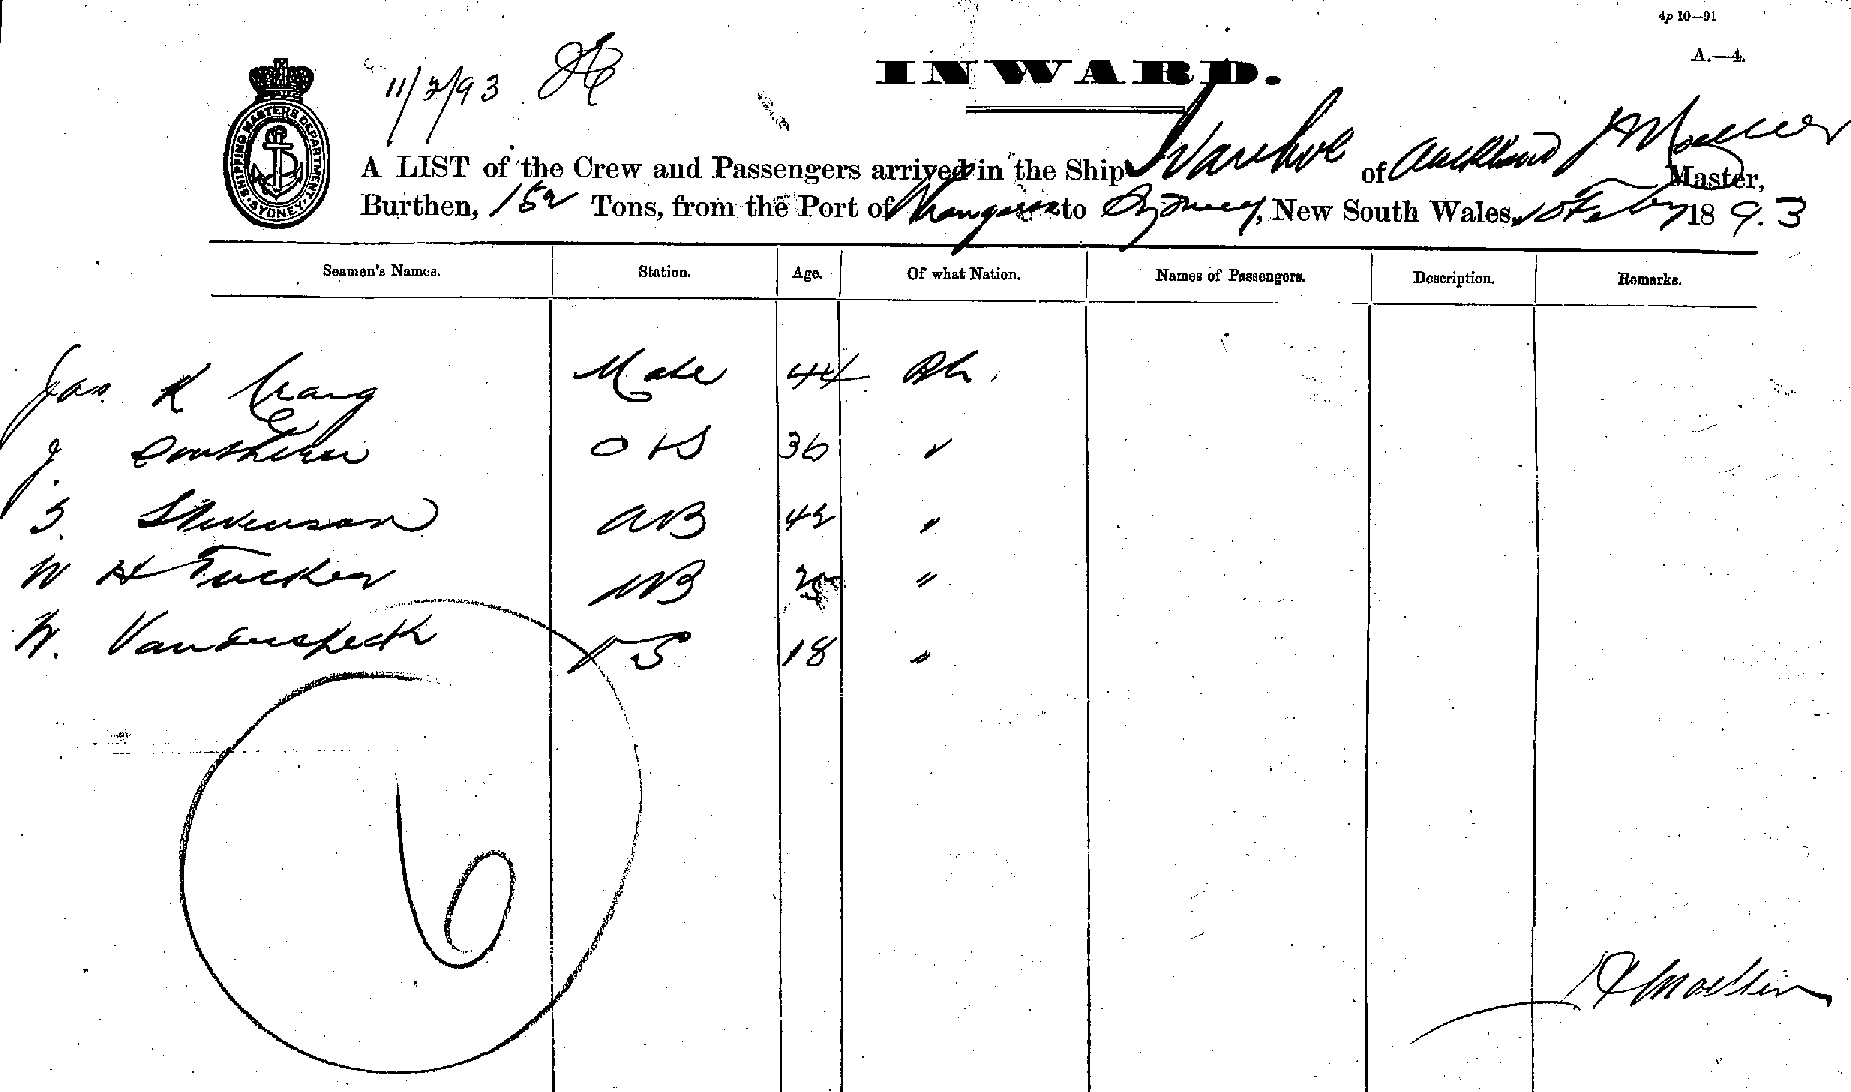 4p 10—91
A.—4.
11/2/93
INWARD.
SHIPPING MASTERS DEPARTMENT SYDNEY
A LIST of the Crew and Passengers arrived in the Ship of Auckland Master,
Burthen, 152 Tons, from the Port of to Sydney, New South Wales, 10 Feby 1893
Seamen's Names. Station. Age. Of what Nation. Names of Passengers. Description. Remarks.
Jas. R Craig Mate 44 Bh.
J. Southern 36 "
S. Stevenson AB 42 "
W H Tucker AB "
W. OS 18 "
6